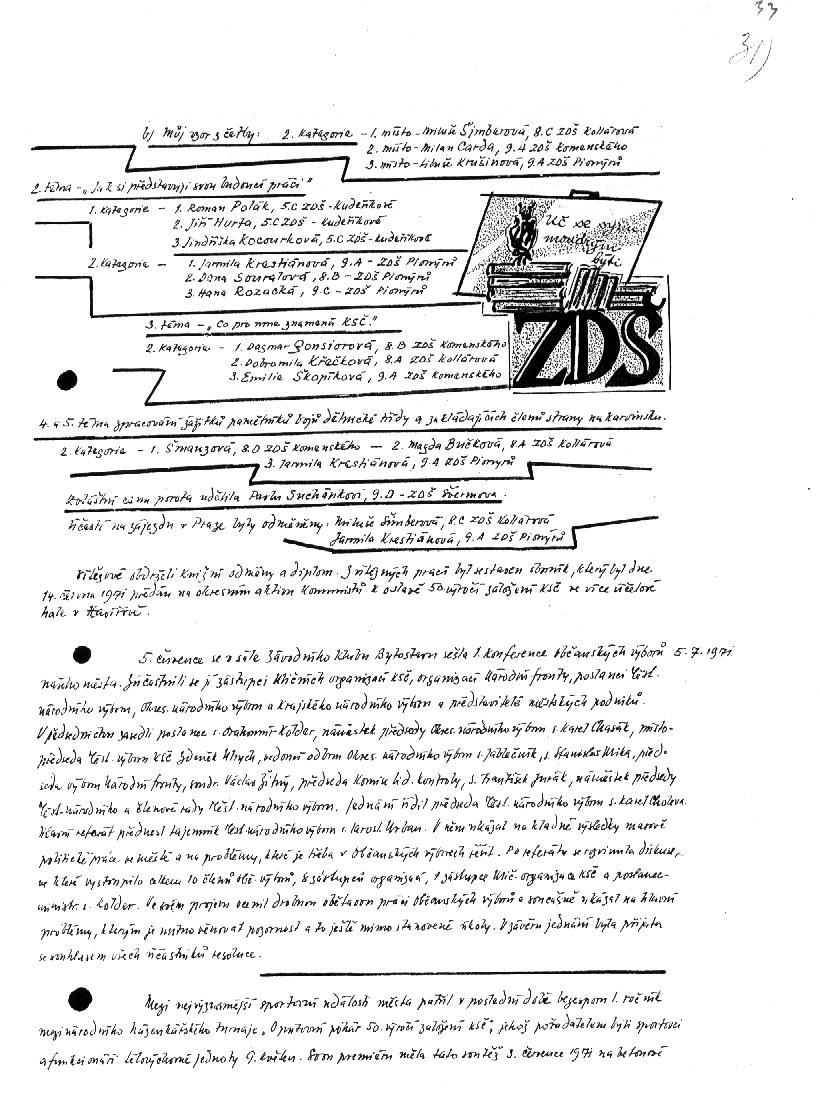 33
31)
b) Můj vzor z četby: 2. kategorie - 1. místo - Miluše Šimberová, 8.C ZDŠ Kollárova
2. místo - Milan Carda, 9.A ZDŠ Komenského
3. místo - Libuše Krušinová, 9.A ZDŠ Pionýrů
2. téma - „Jak si představuji svou budoucí práci"
1. kategorie - 1. Roman Polák, 5.C ZDŠ - Kudeříkové
2. Jiří Hurta, 5.C ZDŠ - Kudeříkové
3. Jindřiška Kocourková, 5.C ZDŠ - Kudeříkové
2. kategorie - 1. Jarmila Krestiánová, 9.A - ZDŠ Pionýrů
2. Dana Souralová, 8.B - ZDŠ Pionýrů
3. Hana Rozacká, 9.C - ZDŠ Pionýrů
Uč se synu
moudrým
býti
ZDŠ
3. téma - „Co pro mne znamená KSČ."
2. kategorie - 1. Dagmar Gonsiorová, 8.B ZDŠ Komenského
2. Dobromila Křečková, 8.A ZDŠ Kollárova
3. Emilie Skopíková, 9.A ZDŠ Komenského
4. a 5. téma zpracování zážitků pamětníků bojů dělnické třídy a zakládajících členů strany na Karvinsku.
2. kategorie - 1. Šmauzová, 8.D ZDŠ Komenského - 2. Magda Bučková, 8.A ZDŠ Kollárova
3. Jarmila Krestiánová, 9.A ZDŠ Pionýrů
Zvláštní cenu porota udělila Pavlu Suchánkovi, 9.D - ZDŠ Švermova.
Účastí na zájezdu v Praze byly odměněny: Miluše Šimberová, 8.C ZDŠ Kollárova
Jarmila Krestiánová, 9.A ZDŠ Pionýrů
Vítězové obdrželi knižní odměny a diplom. Z vítězných prací byl sestaven sborník, který byl dne
14. června 1971 předán na okresním aktivu komunistů k oslavě 50. výročí založení KSČ ve víceúčelové
hale v Havířově.
5. července se v sále Závodního klubu Bytostavu sešla 1. konference občanských výborů 5.7.1971
našeho města. Zúčastnili se jí zástupci uličních organizací KSČ, organizací Národní fronty, poslanci Měst.
národního výboru, Okres. národního výboru a Krajského národního výboru a představitelé městských podniků.
V předsednictvu zasedli poslanec s. Drahomír Kolder, náměstek předsedy Okres. národního výboru s. Karel Chasák, místo-
předseda Měst. výboru KSČ Zdeněk Uhrych, vedoucí odboru Okres. národního výboru s. Jablečník, s. Stanislav Mika, před-
seda výboru Národní fronty, soudr. Václav Žitný, předseda Komise lid. kontroly, s. František Jurák, náměstek předsedy
Měst. národního a členové rady Měst. národního výboru. Jednání řídil předseda Měst. národního výboru s. Karel Choleva.
Hlavní referát přednesl tajemník Měst. národního výboru s. Jarosl. Urban. V něm ukázal na kladné výsledky masově
politické práce ve městě a na problémy, které je třeba v Občanských výborech řešit. Po referátu se rozvinula diskuse,
ve které vystoupilo celkem 10 členů obč. výborů, 8 zástupců organizací, 1 zástupce ulič. organizace KSČ a poslanec-
ministr s. Kolder. Ve svém projevu ocenil drobnou obětavou práci Občanských výborů a současně ukázal na hlavní
problémy, kterým je nutno věnovat pozornost a to ještě mimo stanovené úkoly. V závěru jednání byla přijata
se souhlasem všech účastníků resoluce.
Mezi nejvýznamnější sportovní události města patřil v poslední době bezesporu 1. ročník
mezinárodního házenkářského turnaje „O putovní pohár 50. výročí založení KSČ", jehož pořadatelem byli sportovci
a funkcionáři tělovýchovné jednoty 9. květen. Svou premiéru měla tato soutěž 3. července 1971 na betonové